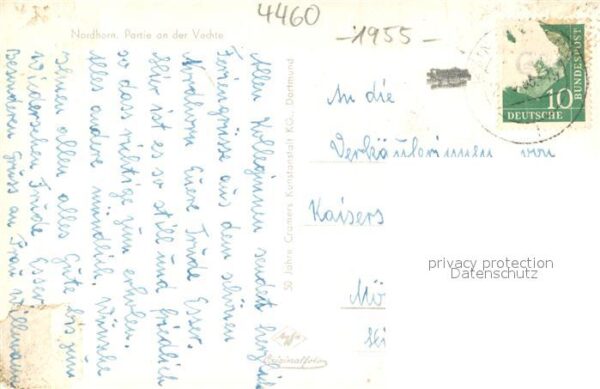 4460
Nordhorn. Partie an der Vechte
-1955-
10
DEUTSCHE
BUNDESPOST
Allen Kolleginnen sendet herzliche
Feriengrüsse aus dem schönen
Nordhorn Euere Trude Esser.
Hier ist es so still und friedlich
so das richtige zum erholen.
Alles andere mündlich. Wünsche
Ihnen allen alles Gute bis zum
Widersehen Trude Esser
Besonderen Gruss an Frau Willmann
50 Jahre Cramers Kunstanstalt KG., Dortmund
An die
Verkäuferinnen von
Kaisers
Mö
privacy protection
Datenschutz
Agfa
Originalfoto